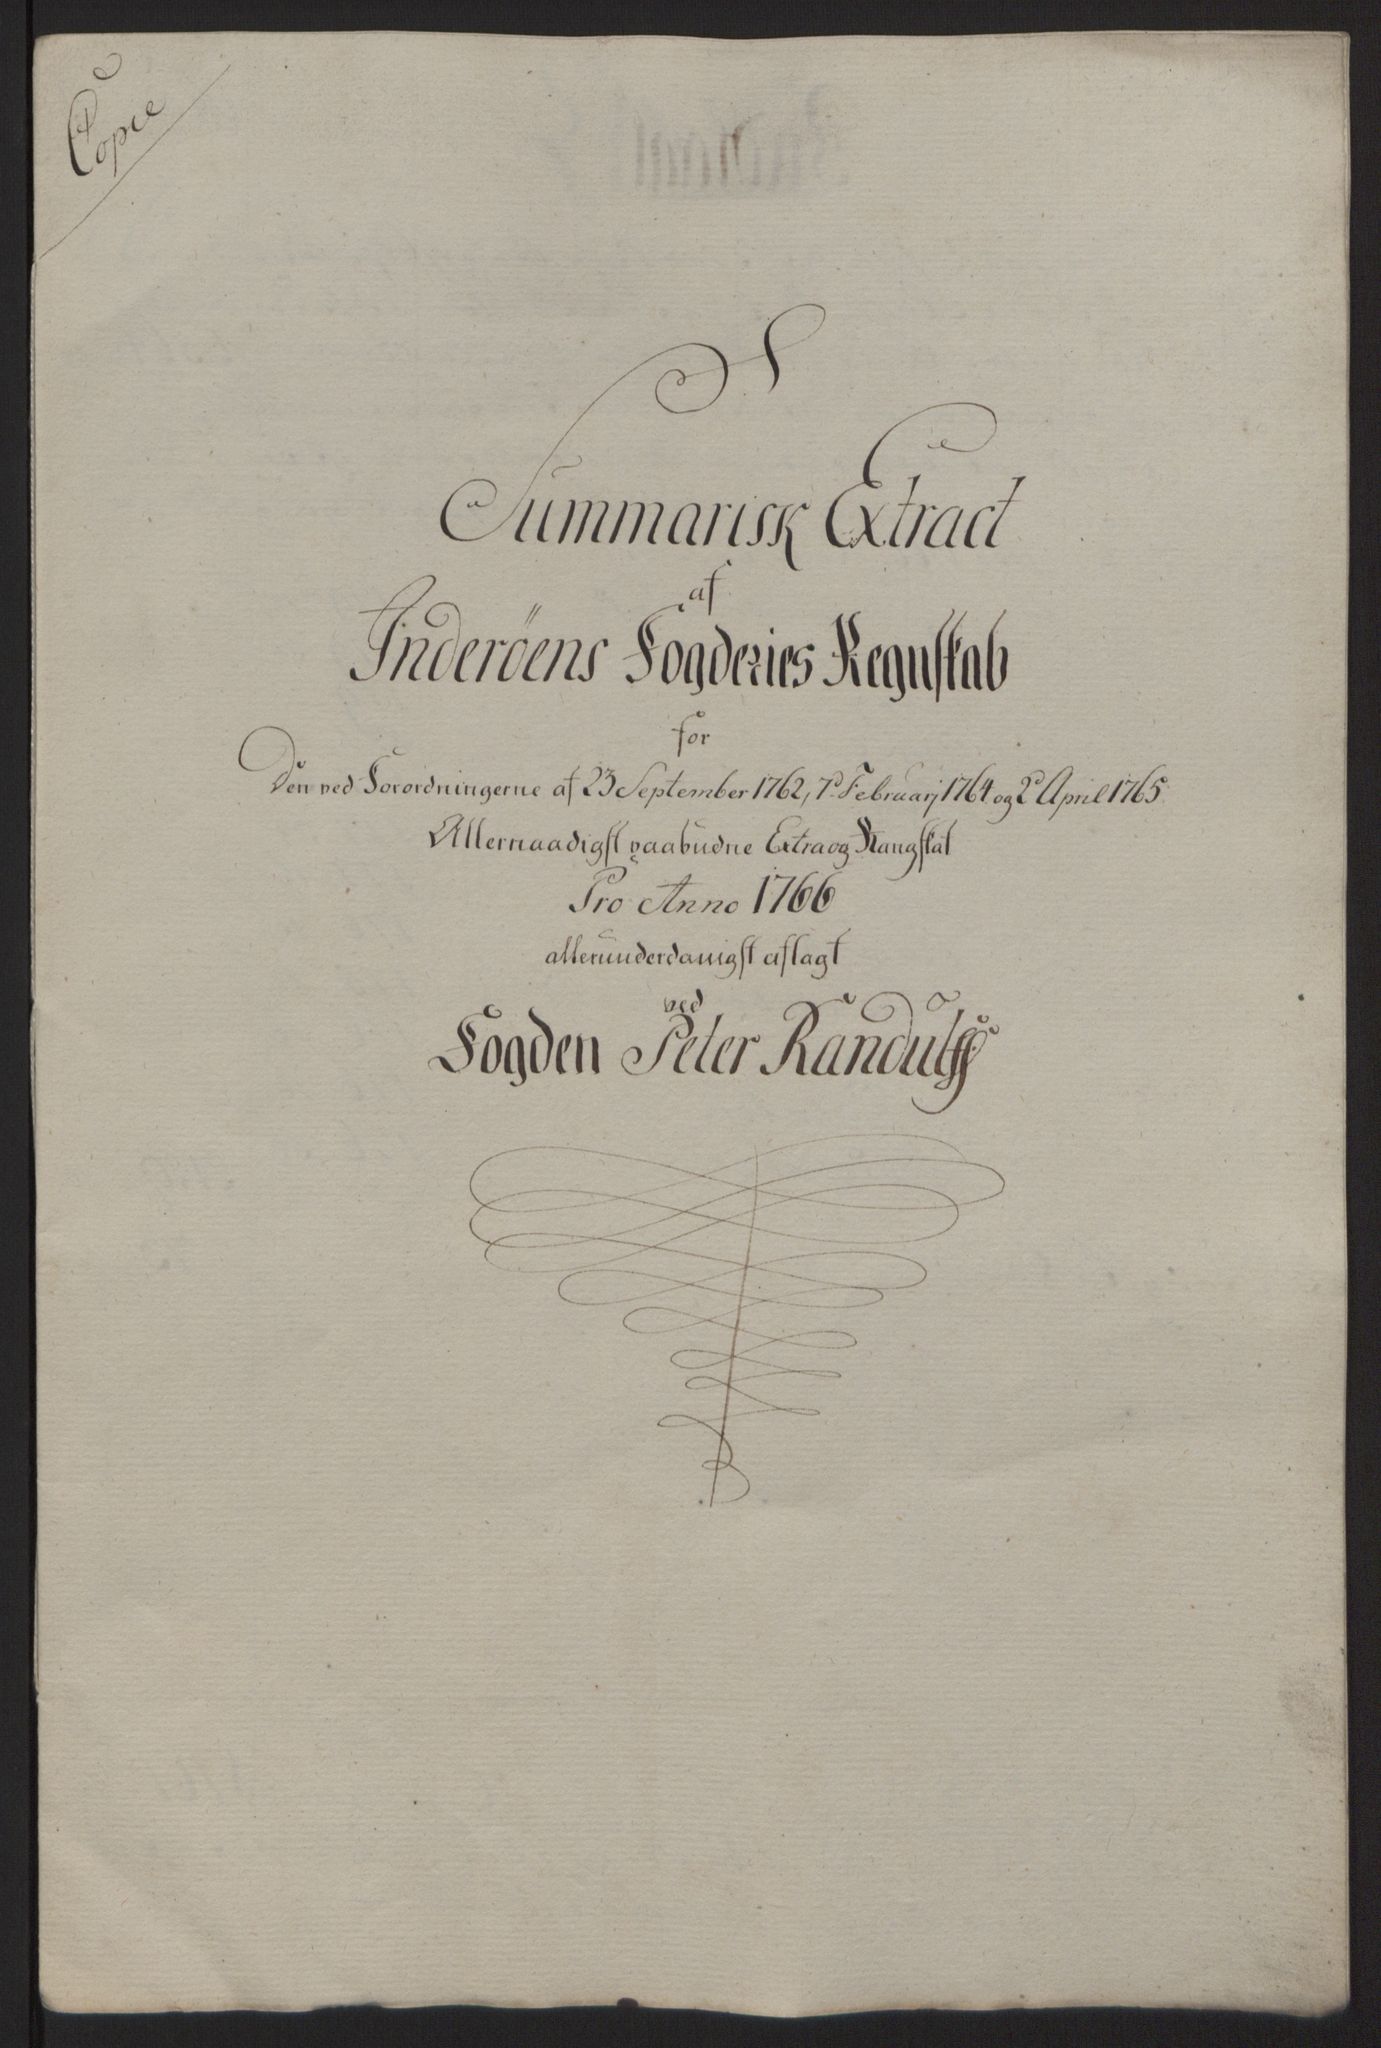 Copie
Summarisk Extract
af
Inderöens Fogderies Regnskab
for
Den ved Forordningerne af 23 September 1762, 7d. Februarij 1764 og 2d April 1765.
Allernaadigst paabudne Extra og Rangskat
Pro Anno 1766
allerunderdanigst aflagt
ved
Fogden Peter Randulff